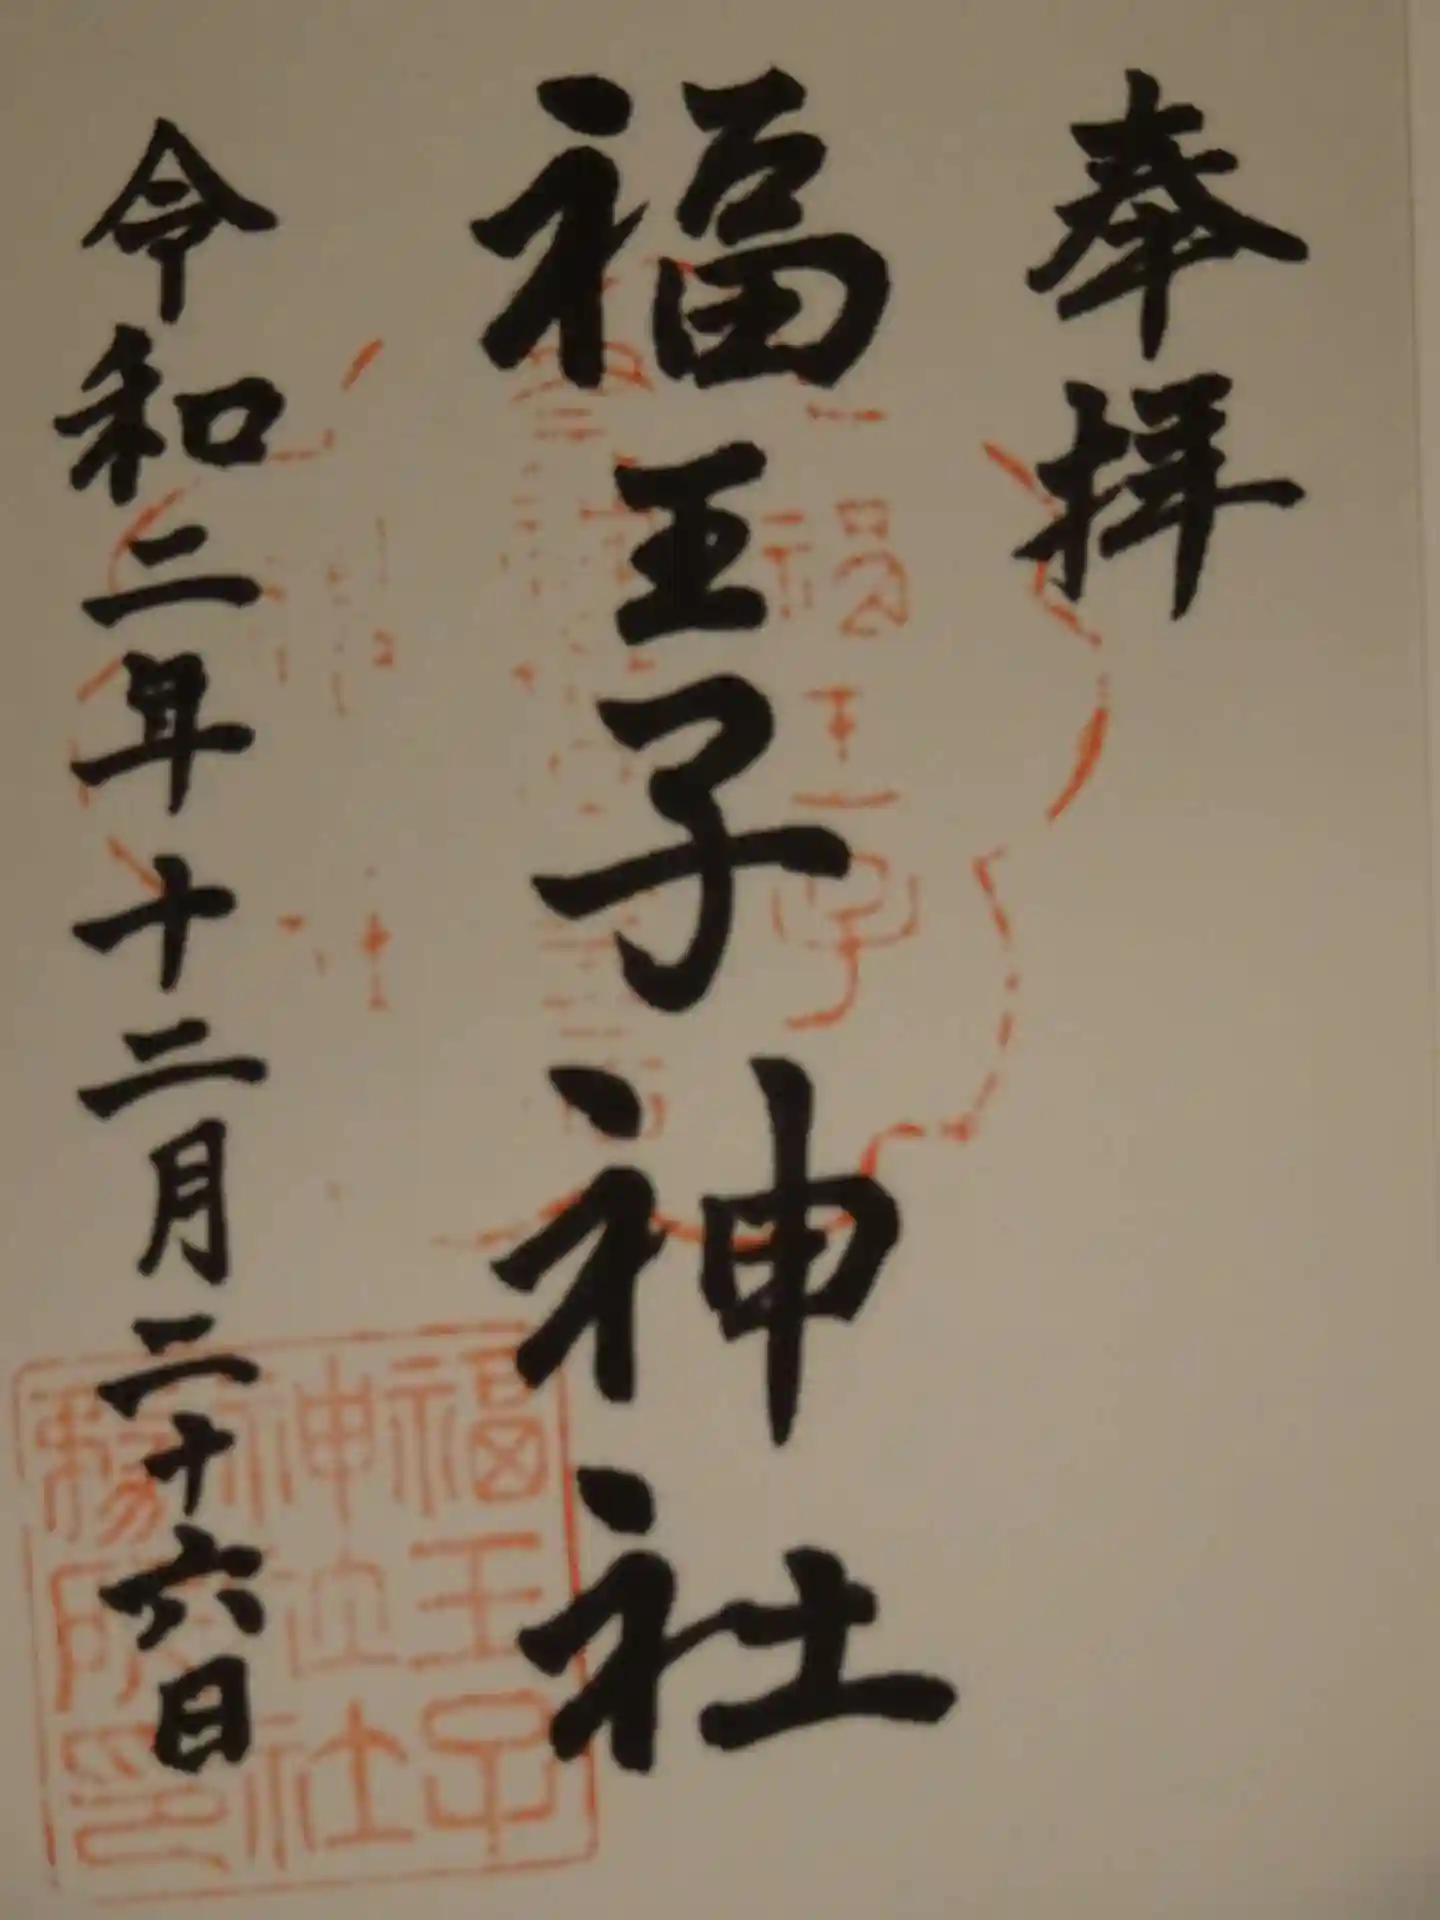 奉拝
福王子神社
令和二年十二月二十六日
福王子
神社
務所印